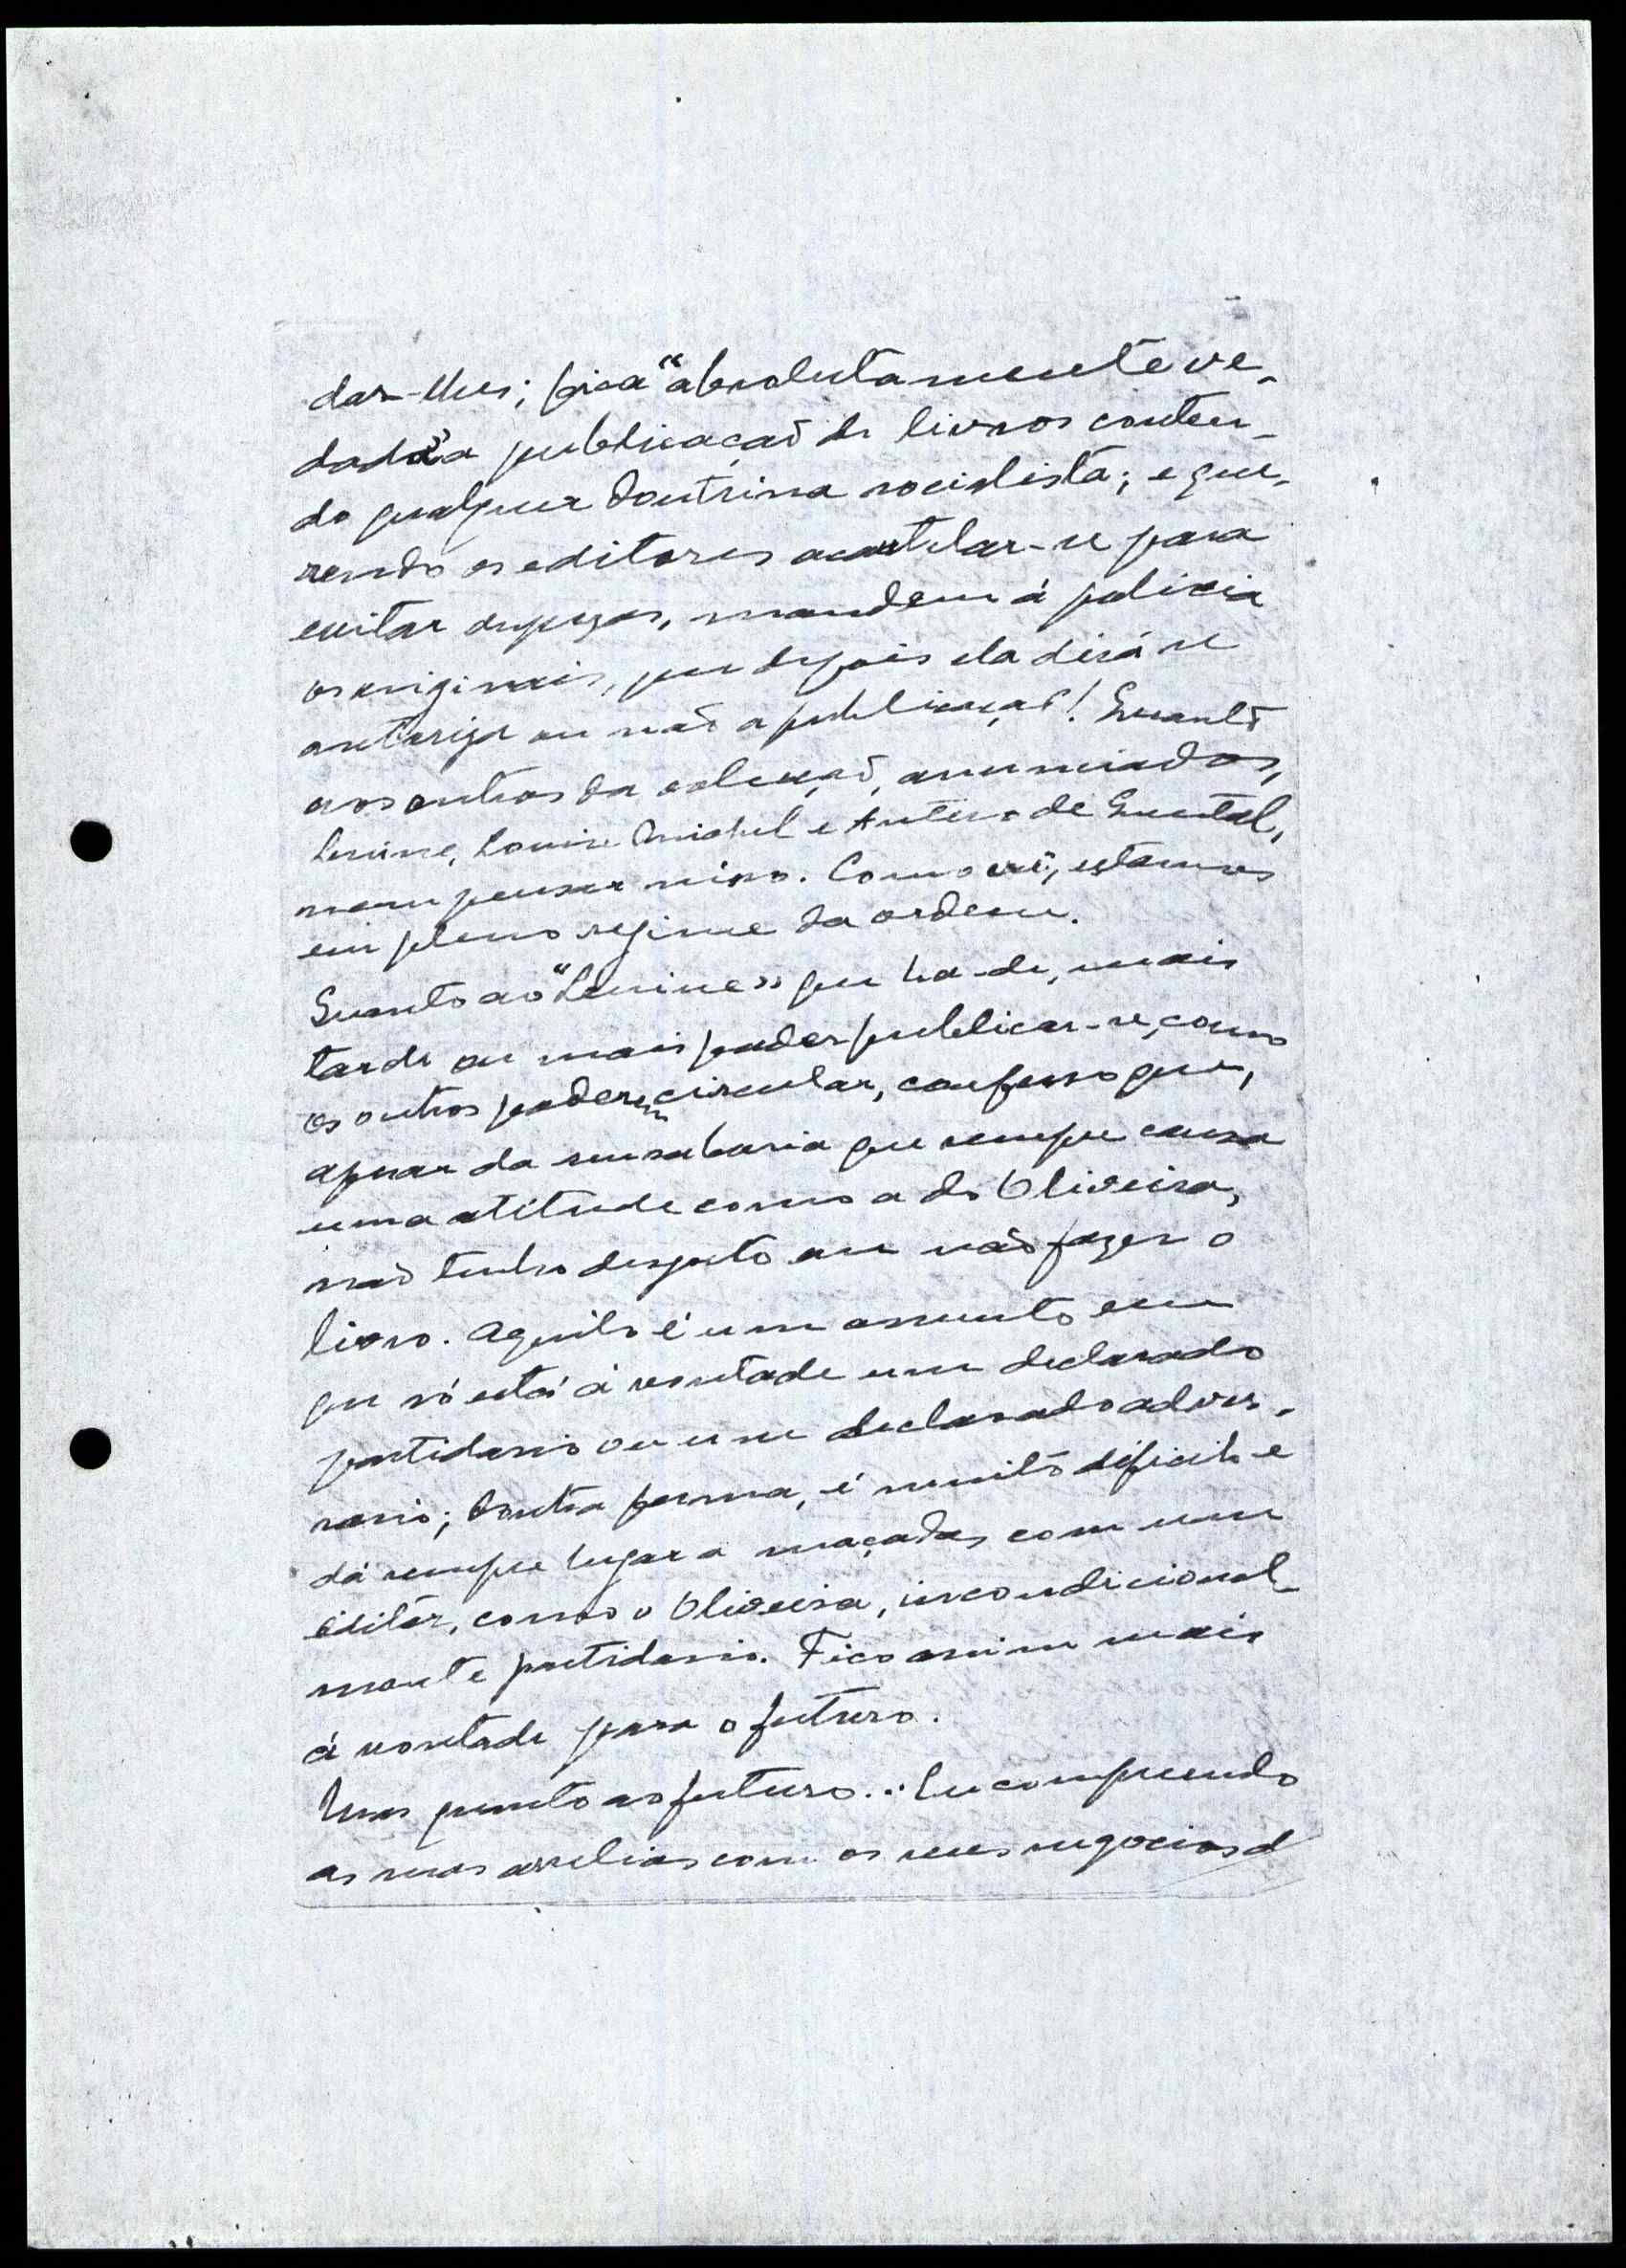 dar-lhes; fica "absolutamente ve-
dada" a publicação de livros conten-
do qualquer doutrina socialista; e que-
rendo os editores acautelar-se para
evitar despezas, mandem á policia
os originais, que depois ela dirá se
autoriza ou não a publicação! Quanto
aos outros da colecção, anunciados,
Lenine, Louise Michel e Antero de Quental,
nem pensar nisso. Como vê, estamos
em pleno regime da ordem.
Quanto ao "Lenine» que ha-de, mais
tarde ou mais poder publicar-se, como
os outros poderem circular, confesso que,
apesar da sensaboria que sempre causa
uma atitude como a do Oliveira,
não tenho desgosto em não fazer o
livro. Aquilo é um assunto em
que só está á vontade um declarado
partidario ou um declarado adver-
sario; doutra forma, é muito dificil e
dá sempre lugar a maçadas com um
editor, como o Oliveira, incondicional-
mente partidario. Fico assim mais
á vontade para o futuro.
Mas quanto ao futuro... Eu compreendo
as suas arrelias com os seus negocios d